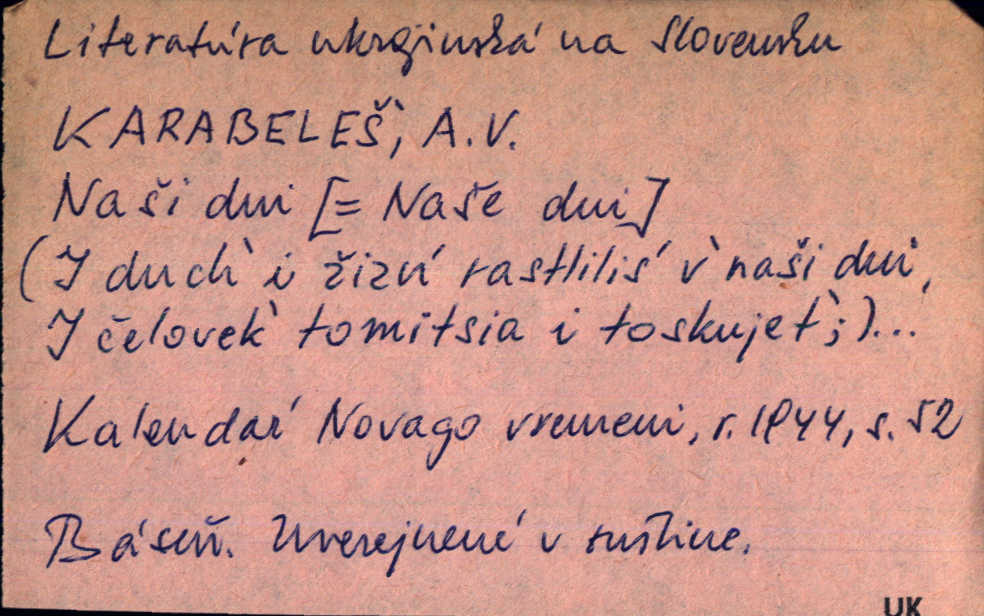 Literatúra ukrajinská na Slovensku
KARABELEŠ`, A.V.
Naši dni [= Naše dni]
(I duch` i žizń rastliliś v` naši dni,
I čelovek` tomitsia i toskujet`;)...
Kalendaŕ Novago vremeni, r. 1944, s. 52
Báseň. Uverejnené v ruštine.
UK